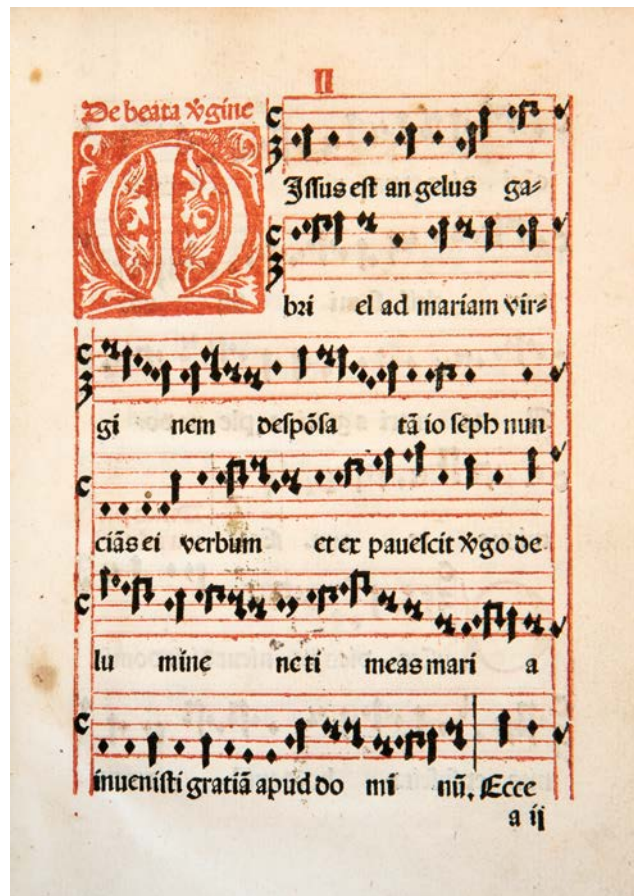 II
De beata v̄gine
MJssus est an gelus ga-
bri el ad mariam vir-
gi nem despōsa tā io seph nun
ciās ei verbum et ex pauescit v̄go de
lu mine ne ti meas mari a
inuenisti gratiā apud do mi nū. Ecce
a ij